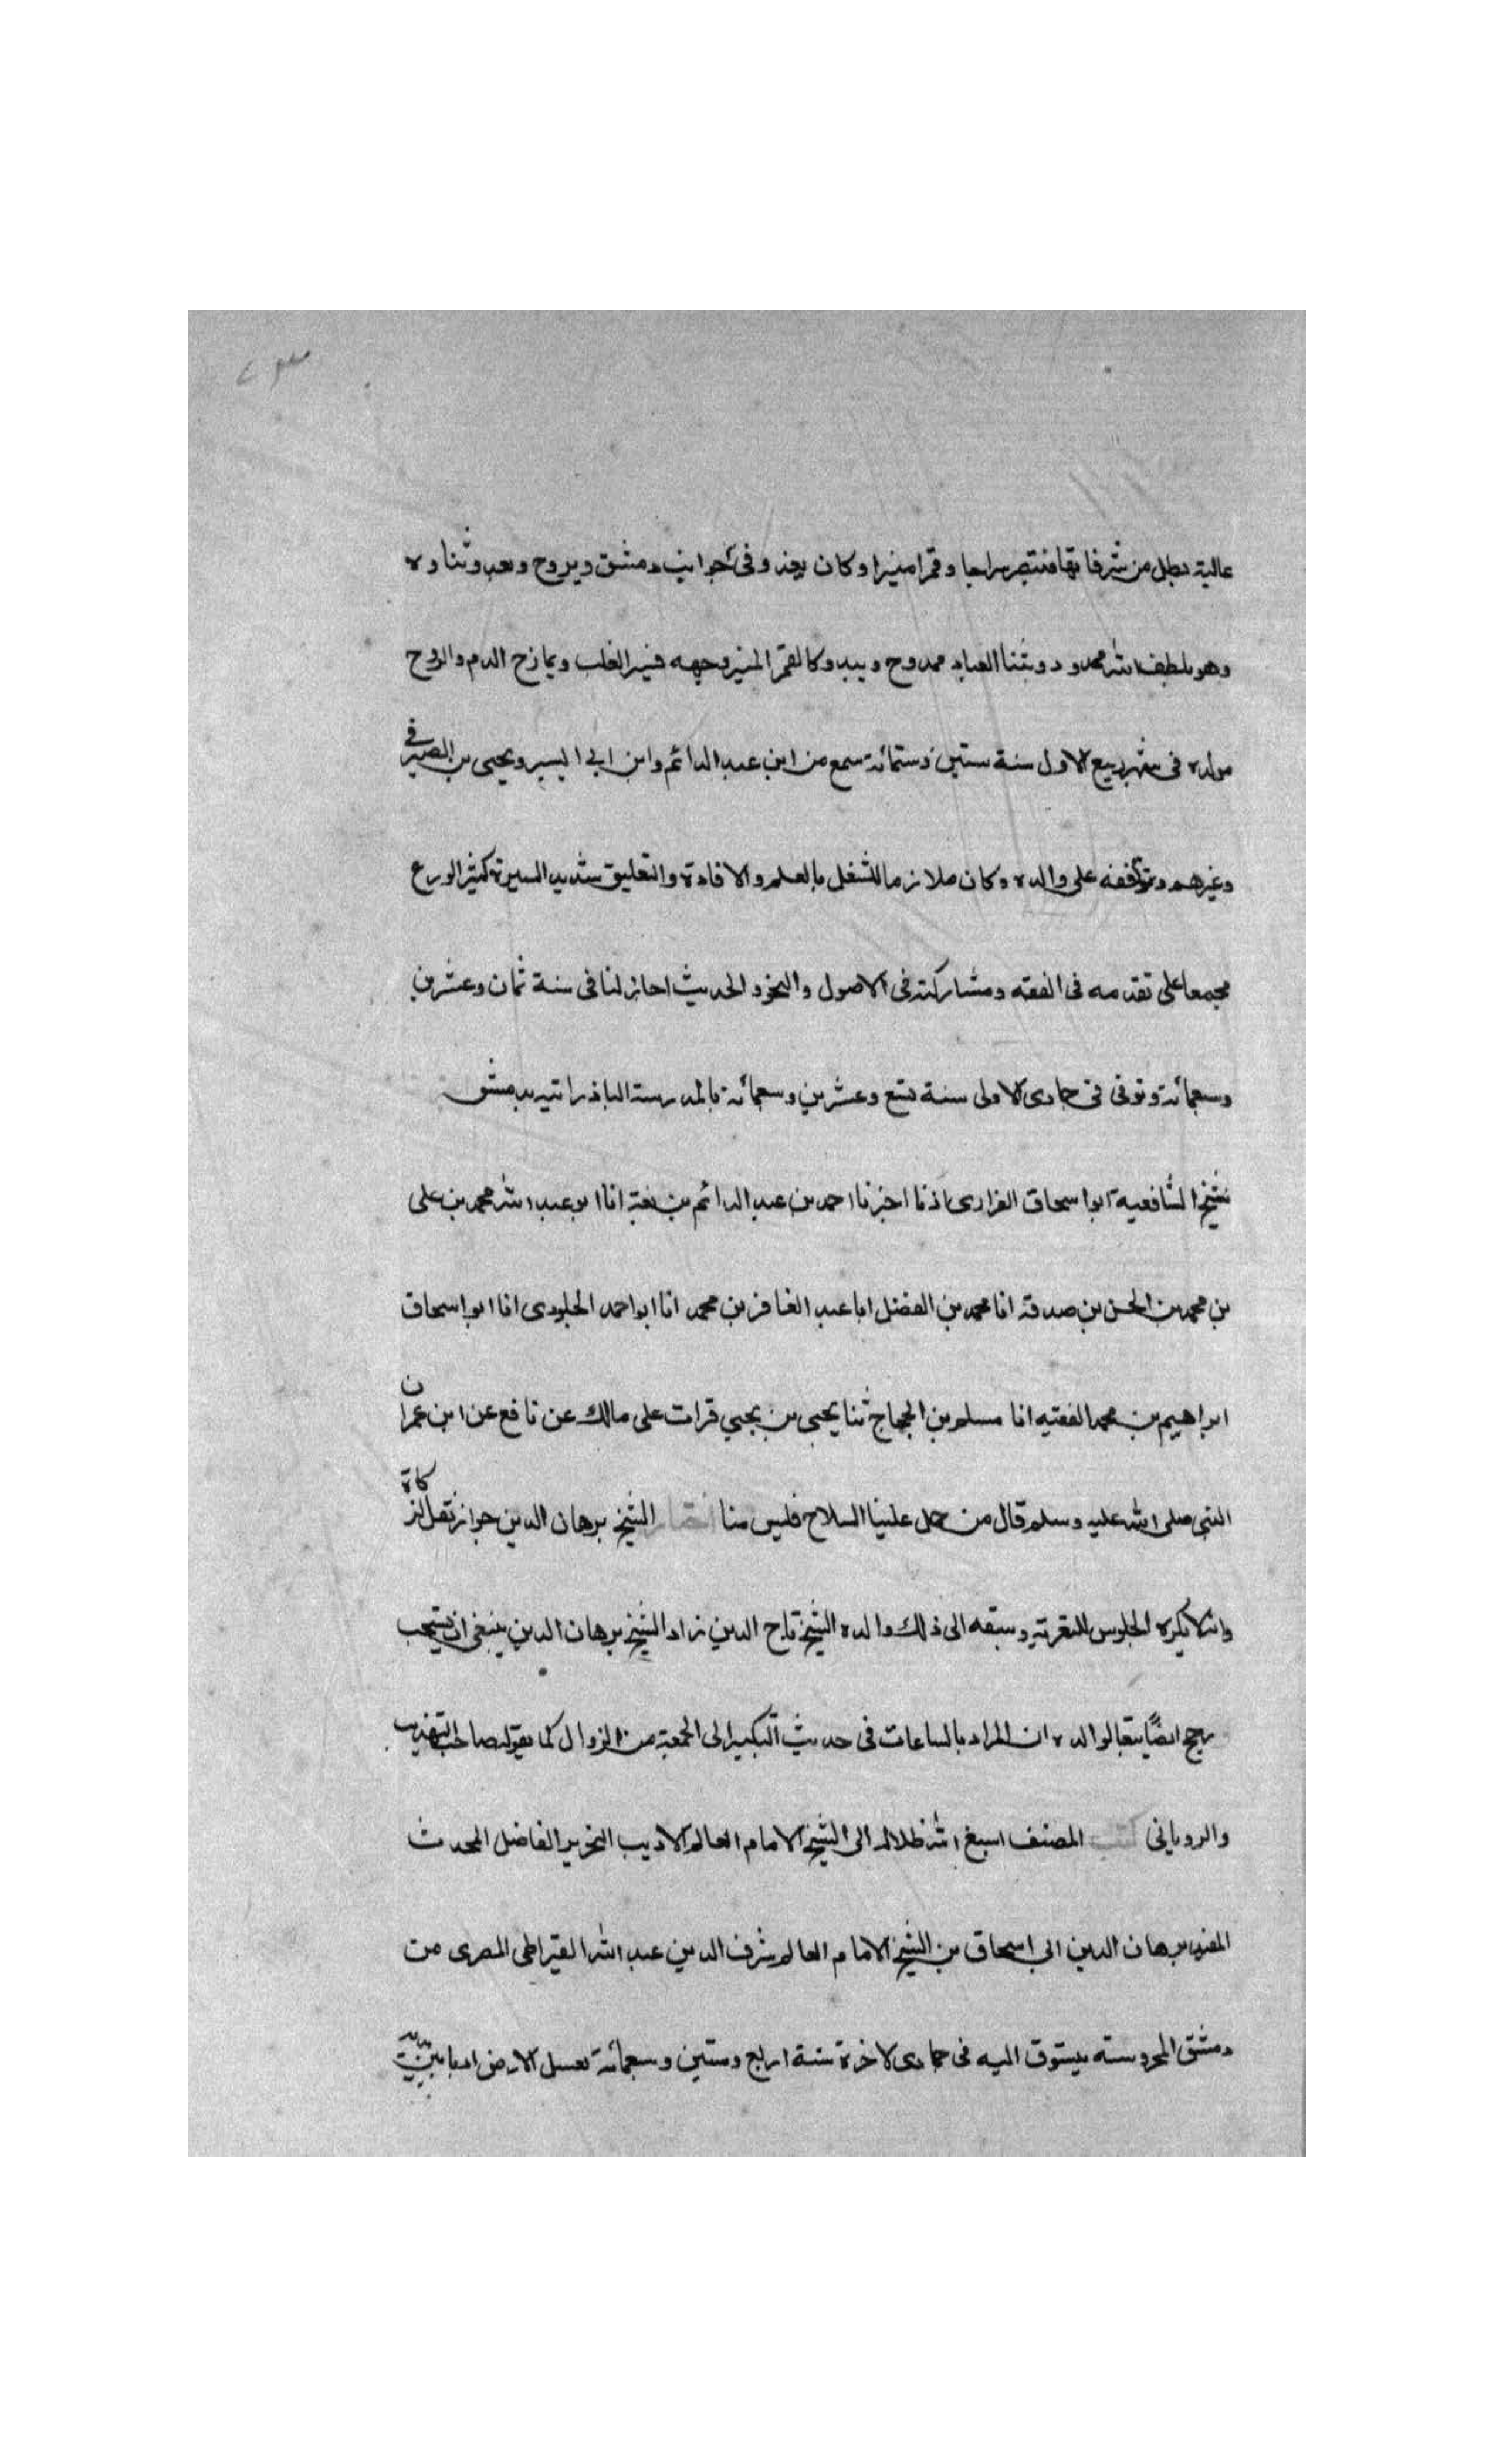 عالية تطل من شرفاتها فتبصر سراجا وقمرا منيرا وكان يغذو في جوانب دمشق ويروح ويعدو وثناوه
وهو بلطف الله محدود وبثنا العباد ممدوح ويبدو كالقمر المنير وجهه فيسر القلب ويمازح الدم والروح
مولده في شهر ربيع الاول سنة ستين وستمائة سمع من ابن عبد الدائم وابن ابي اليسر ويحيى بن الصيرفي
وغيرهم وتفقه على والده وكان ملازما للشغل بالعلم والافادة والتعليق سديد السيرة كثير الورع
مجمعا على تقدمه في الفقه ومشاركته في الاصول والنحو والحديث اجاز لنا في سنة ثمان وعشرين
وسبعمائة وتوفي في جمادى الاولى سنة تسع وعشرين وسبعمائة بالمدرسة الباذرائية بدمشق
شيخ الشافعية ابو اسحاق الفزاري اذنا اخبرنا احمد بن عبد الدائم بن نعمة انا ابو عبد الله محمد بن على
بن محمد بن الحسن بن صدقة انا محمد بن الفضل انا عبد الغافر بن محمد انا ابو احمد الجلودي انا ابو اسحاق
ابراهيم بن محمد الفقيه انا مسلم بن الحجاج ثنا يحيى بن يحيي قرات على مالك عن نافع عن ابن عمر ان
النبي صلى الله عليه وسلم قال من حمل علينا السلاح فليس منا اختار الشيخ برهان الدين جواز نقل الزكاة
وانه لا يكره الجلوس للتعزية وسبقه الى ذلك والده الشيخ تاج الدين زاد الشيخ برهان الدين ينبغي ان يستحب
رجح ايضًا تبعا لوالده ان المراد بالساعات في حديث التبكير الى الجمعة من الزوال كما يقوله صاحب التهذيب
والروياني كتب المصنف اسبغ الله ظلاله الى الشيخ الامام العالم الاديب النحرير الفاضل المحدث
المفيد برهان الدين ابي اسحاق بن الشيخ الامام العالم شرف الدين عبد الله القيراطي المصري من
دمشق المحروسة يتشوق اليه في جمادى الاخرة سنة اربع وستين وسبعمائة يقبل الارض ادبا بين يديه